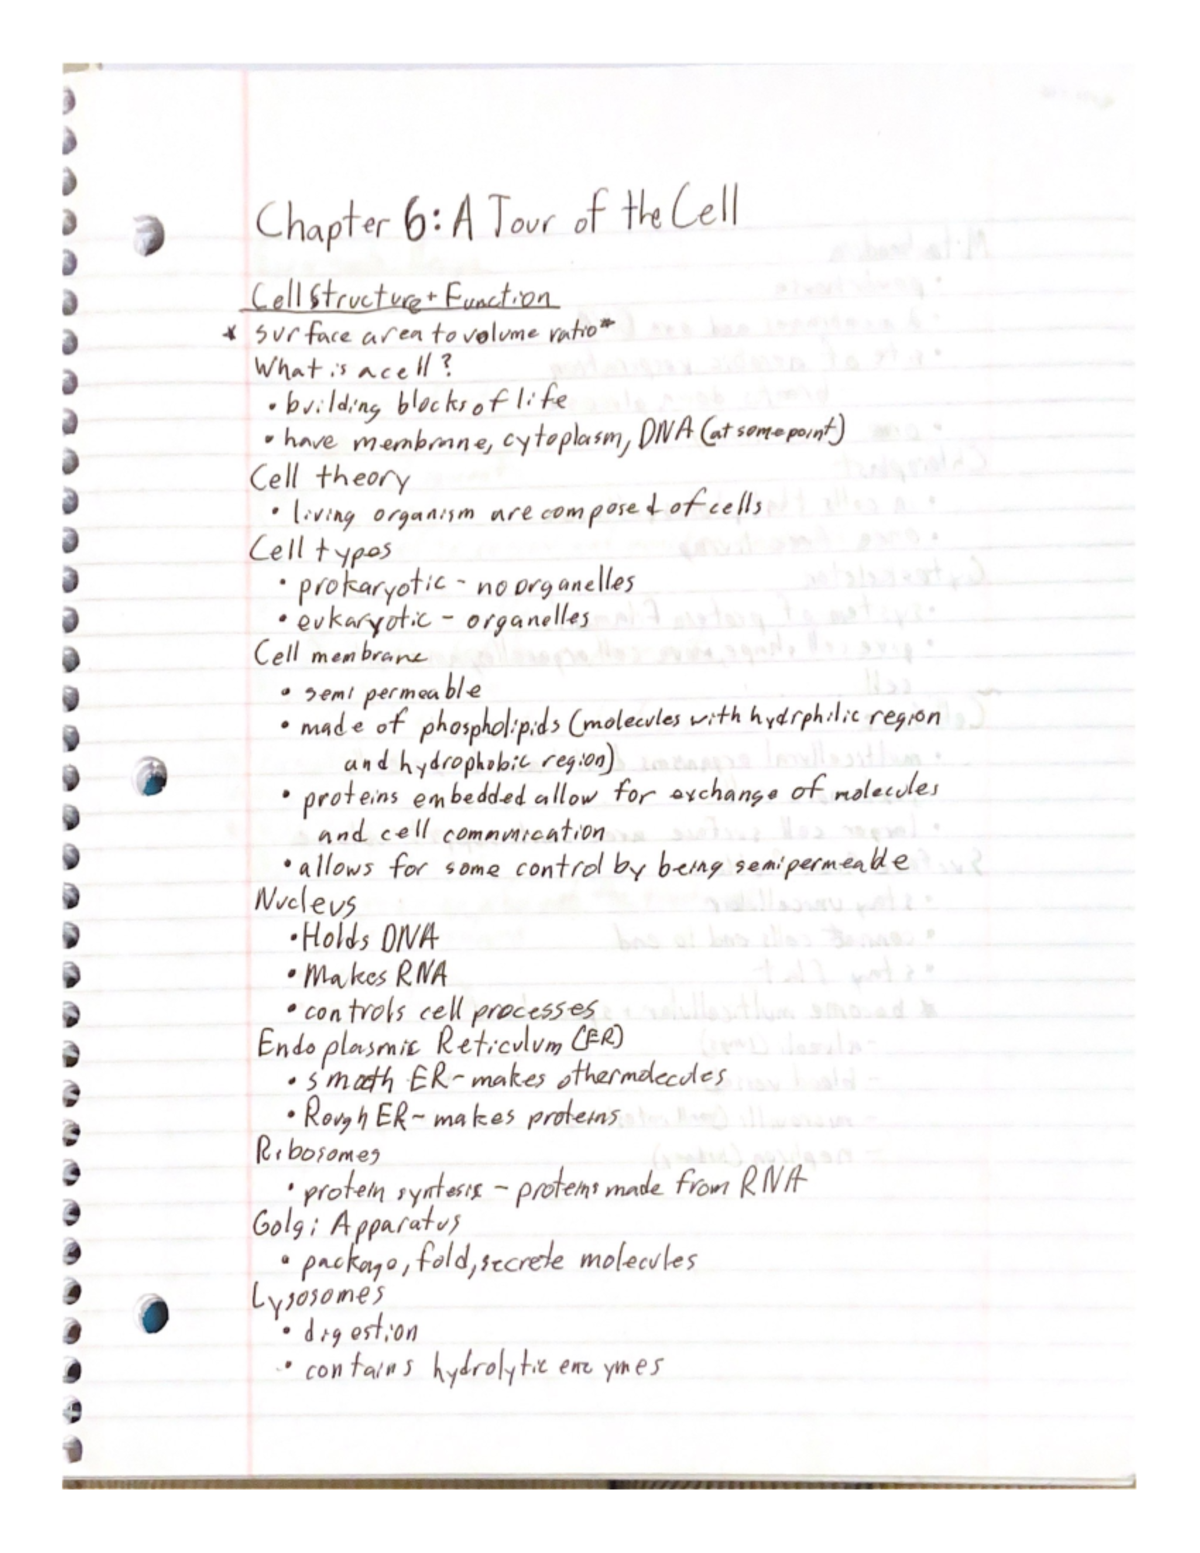 Chapter 6: A Tour of the Cell
Cell Structure + Function
* surface area to volume ratio*
What is a cell?
• building blocks of life
• have membrane, cytoplasm, DNA (at some point)
Cell theory
• living organism are composed of cells
Cell types
• prokaryotic - no organelles
• eukaryotic - organelles
Cell membrane
• semi permeable
• made of phospholipids (molecules with hydrphilic region
and hydrophobic region)
• proteins embedded allow for exchange of molecules
and cell communication
• allows for some control by being semipermeable
Nucleus
• Holds DNA
• Makes RNA
• controls cell processes
Endoplasmic Reticulum (ER)
• smooth ER - makes other molecules
• Rough ER - makes proteins
Ribosomes
• protein syntesis - proteins made from RNA
Golgi Apparatus
• package, fold, secrete molecules
Lysosomes
• digestion
• contains hydrolytic enzymes